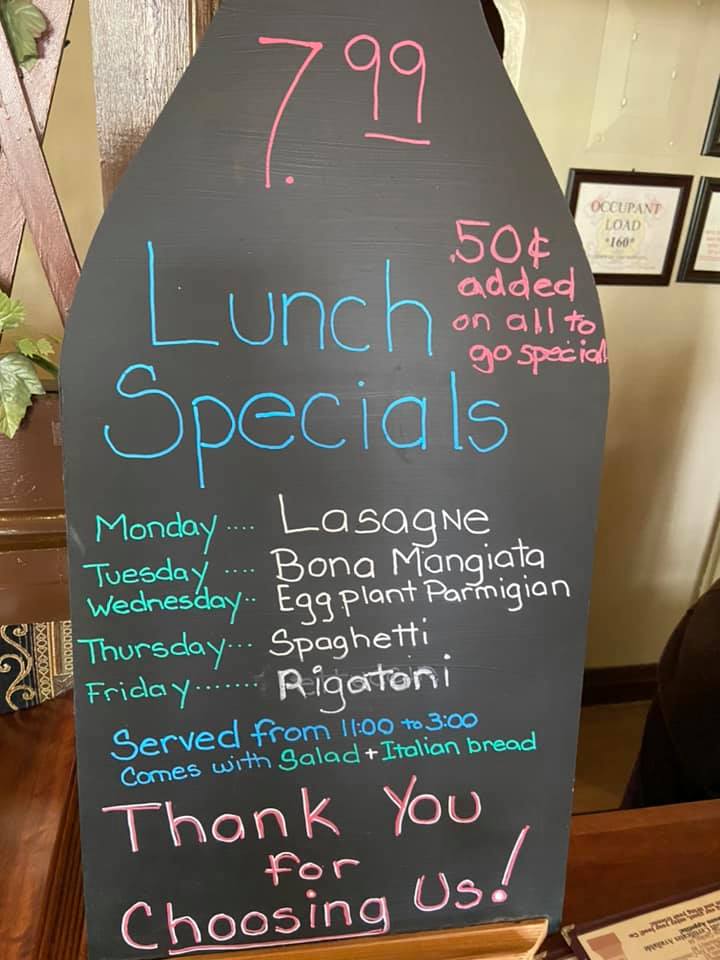 7.99
Lunch
Specials
.50¢
added
on all to
go special
Monday .... Lasagne
Tuesday .... Bona Mangiata
Wednesday.. Eggplant Parmigian
Thursday... Spaghetti
Friday....... Rigatoni
Served from 11:00 to 3:00
Comes with Salad + Italian bread
Thank You
for
Choosing Us!
OCCUPANT
LOAD
*160*